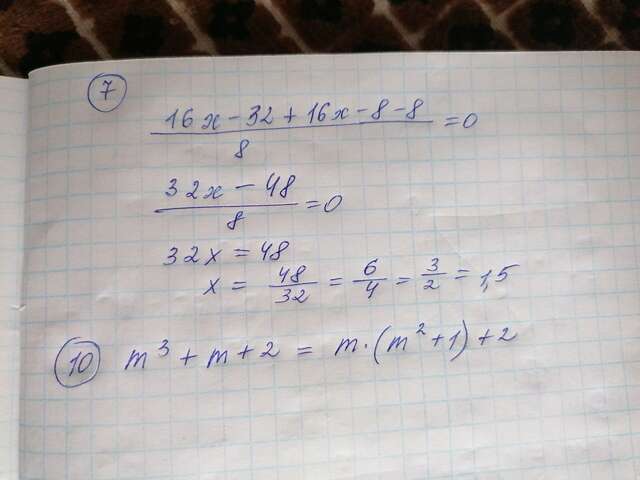 7
16x - 32 + 16x - 8 - 8 / 8 = 0
32x - 48 / 8 = 0
32x = 48
x = 48/32 = 6/4 = 3/2 = 1,5
10 m³ + m + 2 = m · (m² + 1) + 2